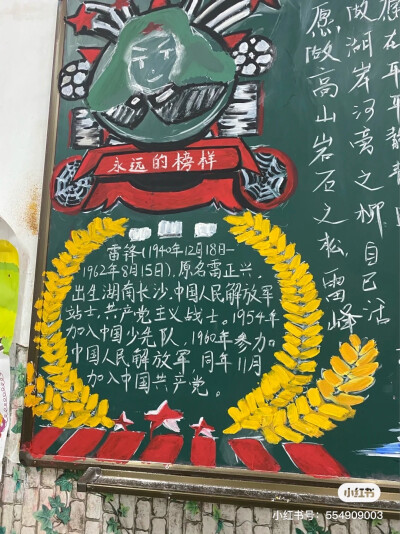 永远的榜样
雷锋(1940年12月18日-
1962年8月15日),原名雷正兴,
出生湖南长沙.中国人民解放军
站士,共产党主义战士。1954年
加入中国少先队,1960年参加
中国人民解放军,同年11月
加入中国共产党。
做湖岸河旁之柳自己活
愿做高山岩石之松雷峰
小红书
小红书号:554909003